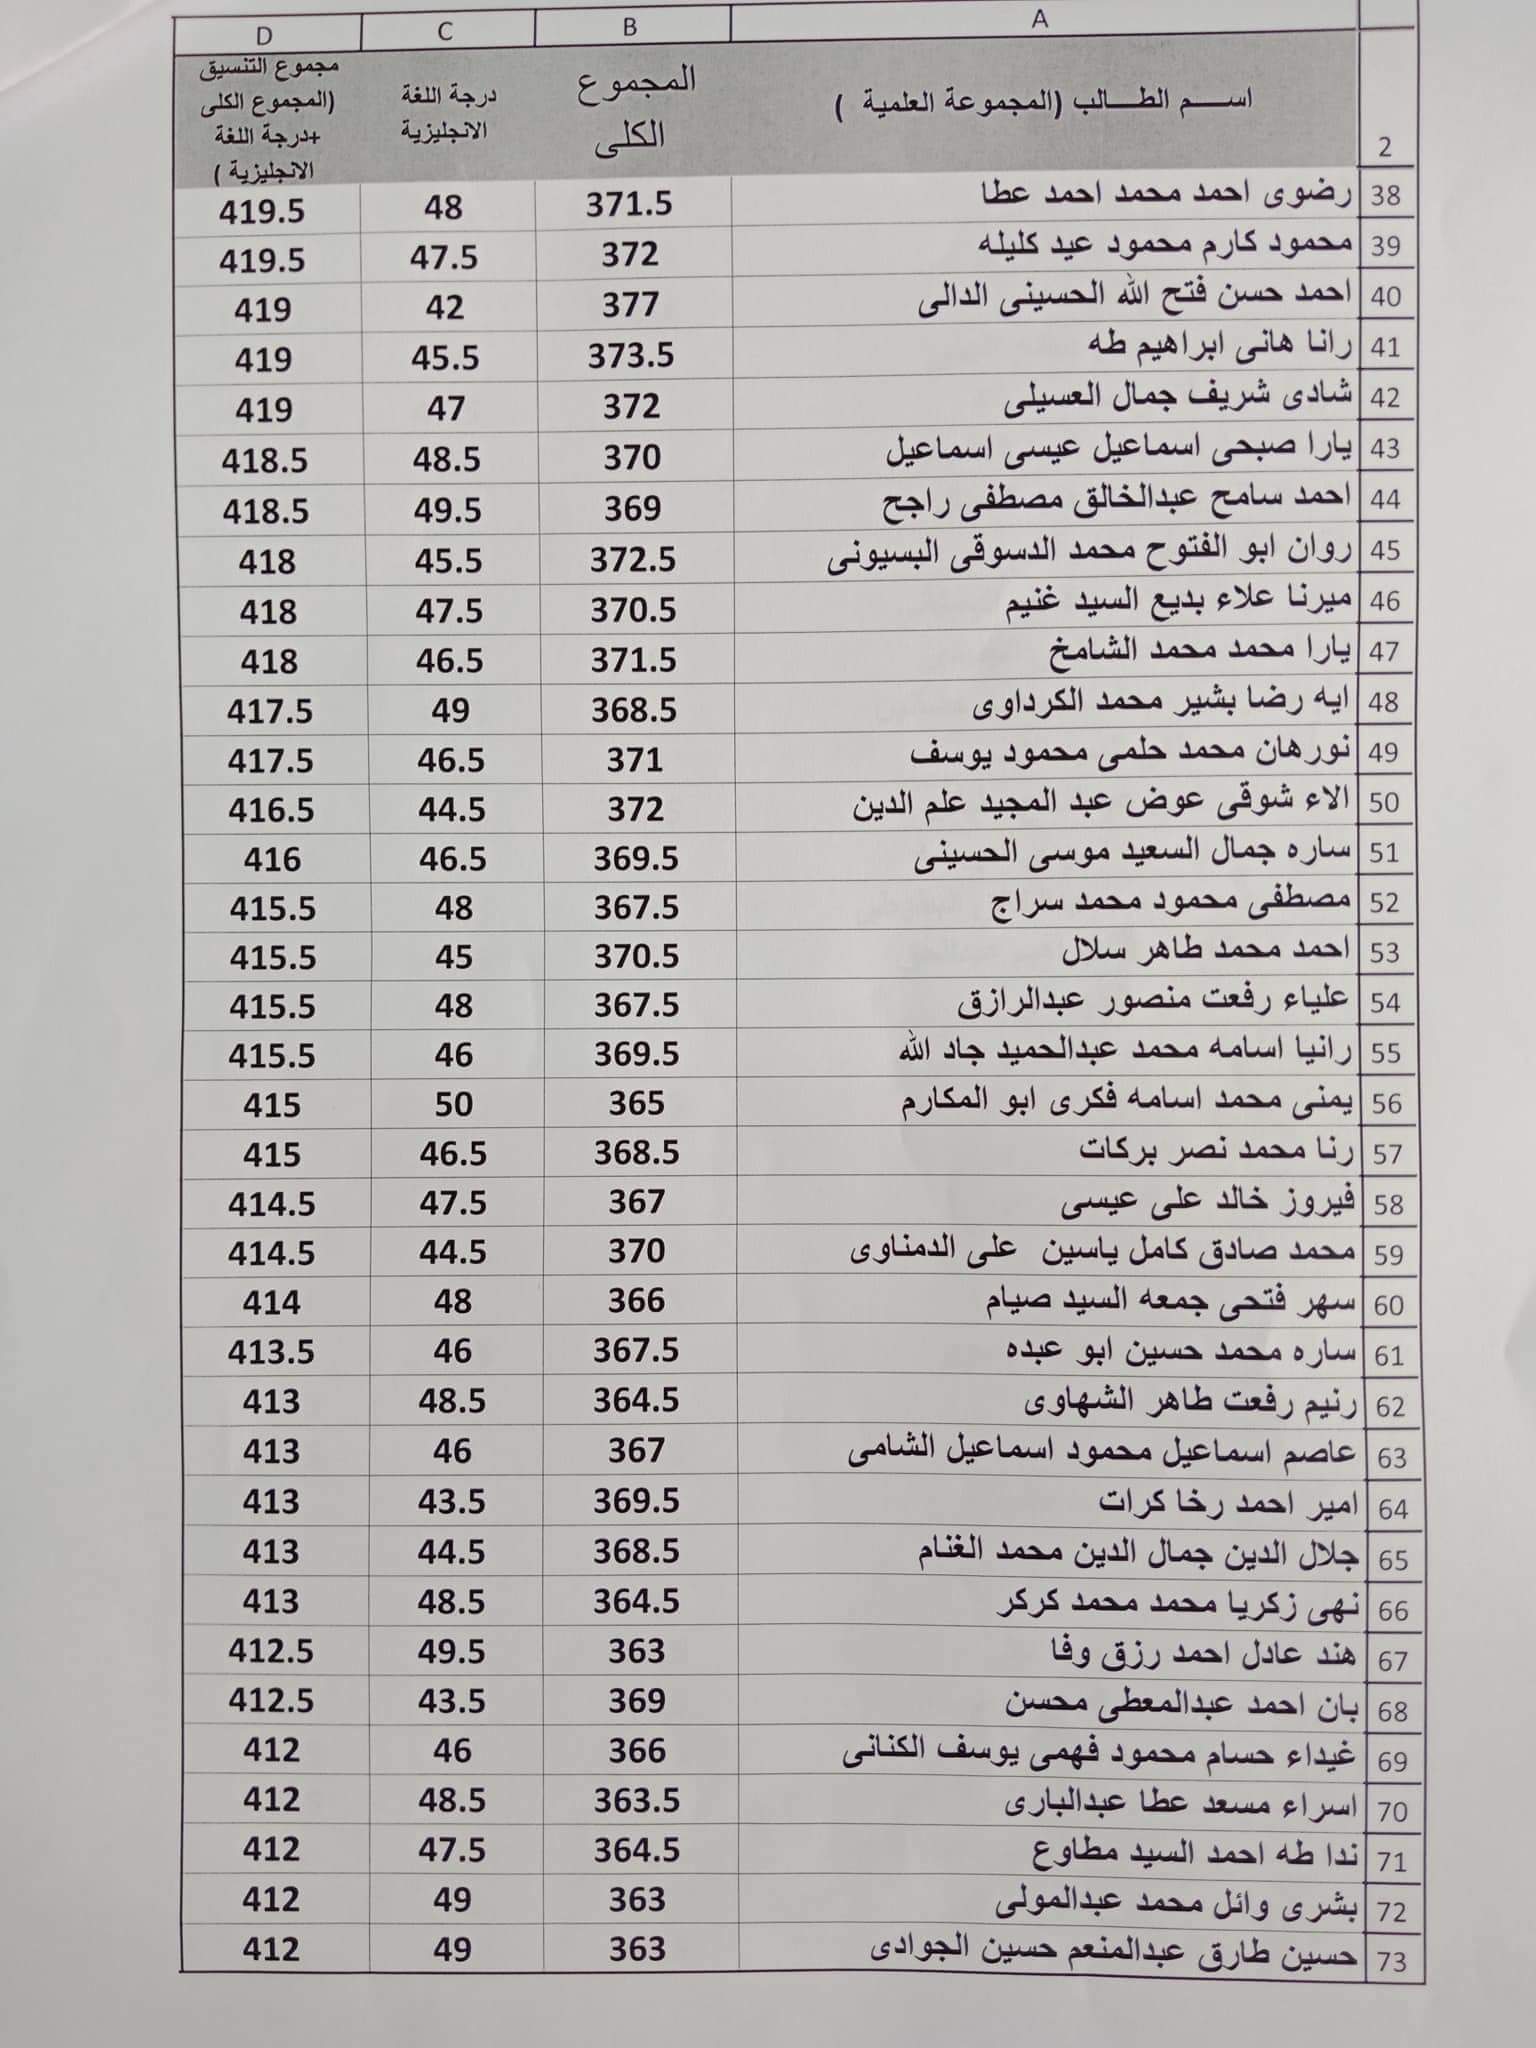 A B C D
2 اســـم الطـــالب (المجموعة العلمية ) المجموع الكلى درجة اللغة الانجليزية مجموع التنسيق (المجموع الكلى +درجة اللغة الانجليزية )
38 رضوى احمد محمد احمد عطا 371.5 48 419.5
39 محمود كارم محمود عيد كليله 372 47.5 419.5
40 احمد حسن فتح الله الحسينى الدالى 377 42 419
41 رانا هانى ابراهيم طه 373.5 45.5 419
42 شادى شريف جمال العسيلى 372 47 419
43 يارا صبحى اسماعيل عيسى اسماعيل 370 48.5 418.5
44 احمد سامح عبدالخالق مصطفى راجح 369 49.5 418.5
45 روان ابو الفتوح محمد الدسوقى البسيونى 372.5 45.5 418
46 ميرنا علاء بديع السيد غنيم 370.5 47.5 418
47 يارا محمد محمد الشامخ 371.5 46.5 418
48 ايه رضا بشير محمد الكرداوى 368.5 49 417.5
49 نورهان محمد حلمى محمود يوسف 371 46.5 417.5
50 الاء شوقى عوض عبد المجيد علم الدين 372 44.5 416.5
51 ساره جمال السعيد موسى الحسينى 369.5 46.5 416
52 مصطفى محمود محمد سراج 367.5 48 415.5
53 احمد محمد طاهر سلال 370.5 45 415.5
54 علياء رفعت منصور عبدالرازق 367.5 48 415.5
55 رانيا اسامه محمد عبدالحميد جاد الله 369.5 46 415.5
56 يمنى محمد اسامه فكرى ابو المكارم 365 50 415
57 رنا محمد نصر بركات 368.5 46.5 415
58 فيروز خالد على عيسى 367 47.5 414.5
59 محمد صادق كامل ياسين على الدمناوى 370 44.5 414.5
60 سهر فتحى جمعه السيد صيام 366 48 414
61 ساره محمد حسين ابو عبده 367.5 46 413.5
62 رنيم رفعت طاهر الشهاوى 364.5 48.5 413
63 عاصم اسماعيل محمود اسماعيل الشامى 367 46 413
64 امير احمد رخا كرات 369.5 43.5 413
65 جلال الدين جمال الدين محمد الغنام 368.5 44.5 413
66 نهى زكريا محمد محمد كركر 364.5 48.5 413
67 هند عادل احمد رزق وفا 363 49.5 412.5
68 بان احمد عبدالمعطى محسن 369 43.5 412.5
69 غيداء حسام محمود فهمى يوسف الكنانى 366 46 412
70 اسراء مسعد عطا عبدالبارى 363.5 48.5 412
71 ندا طه احمد السيد مطاوع 364.5 47.5 412
72 بشرى وائل محمد عبدالمولى 363 49 412
73 حسين طارق عبدالمنعم حسين الجوادى 363 49 412